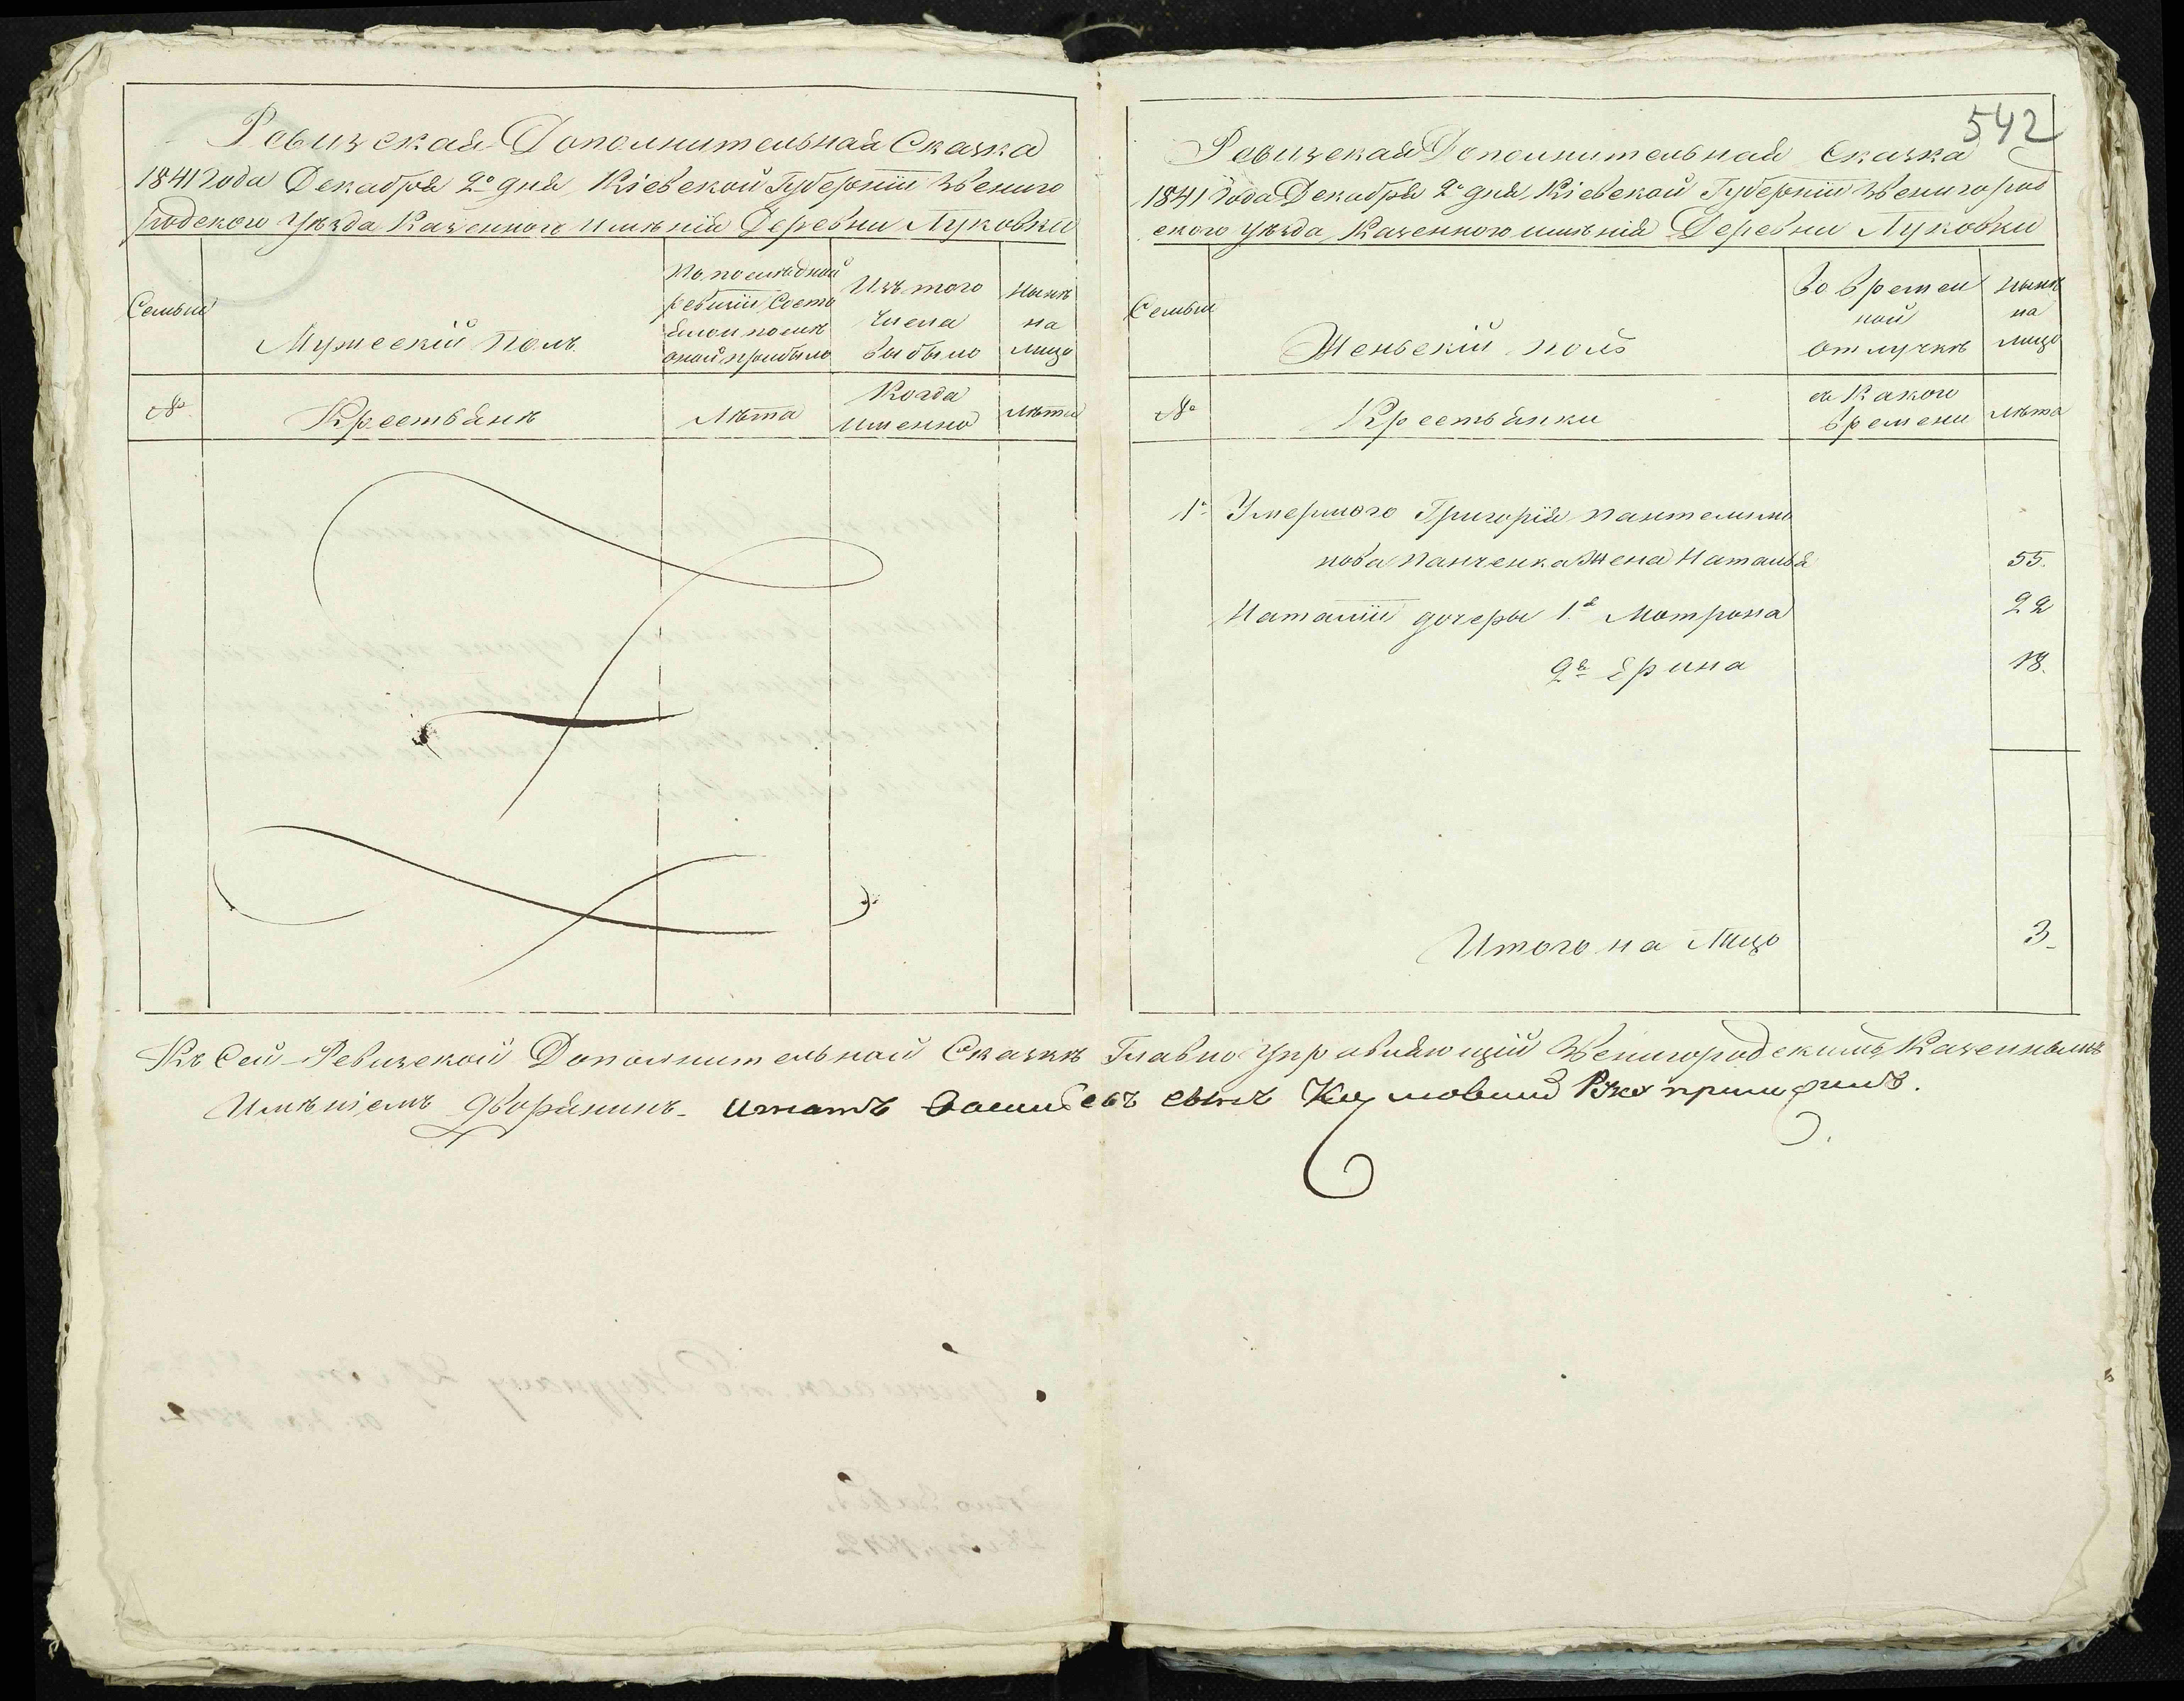 Ревизская Дополнительная Сказка
1841 Года Декабря 2º дня Кіевской Губерніи Звениго
родского Уѣзда Казенного имѣнія Деревни Луковки
Семьи
Мужескій полъ
По последней
ревизіи Состо
яло и послѣ
оной прибыло
Изъ того
Числа
выбыло
Нынѣ
на
лицо
№
Крестьянѣ
Лѣта
Когда
Именно
Лѣта
542
Ревизская Дополнительная Сказка
1841 Года Декабря 2º дня, Кіевской Губерніи Звенигород
ского уѣзда, Казенного имѣнія Деревни Луковки
Семьи
Женьскій полъ
Во времен
ной
отлучкѣ
Нынѣ
на
лицо
№
Крестьянки
съ Какого
времени
Лѣта
1º Умершого Григорія Пантелимо
нова Панченка Жена Наталья 55.
Наталіи дочеры 1.ª Мотрона 22
2.ª Ерина 18.
Итого на Лицо 3
Къ Сей Ревизской Дополнительной Сказкѣ Главно Управляющій Звенигородскимъ Казеннымъ
Имѣніемъ Дворянинъ сынъ Руку приложилъ.